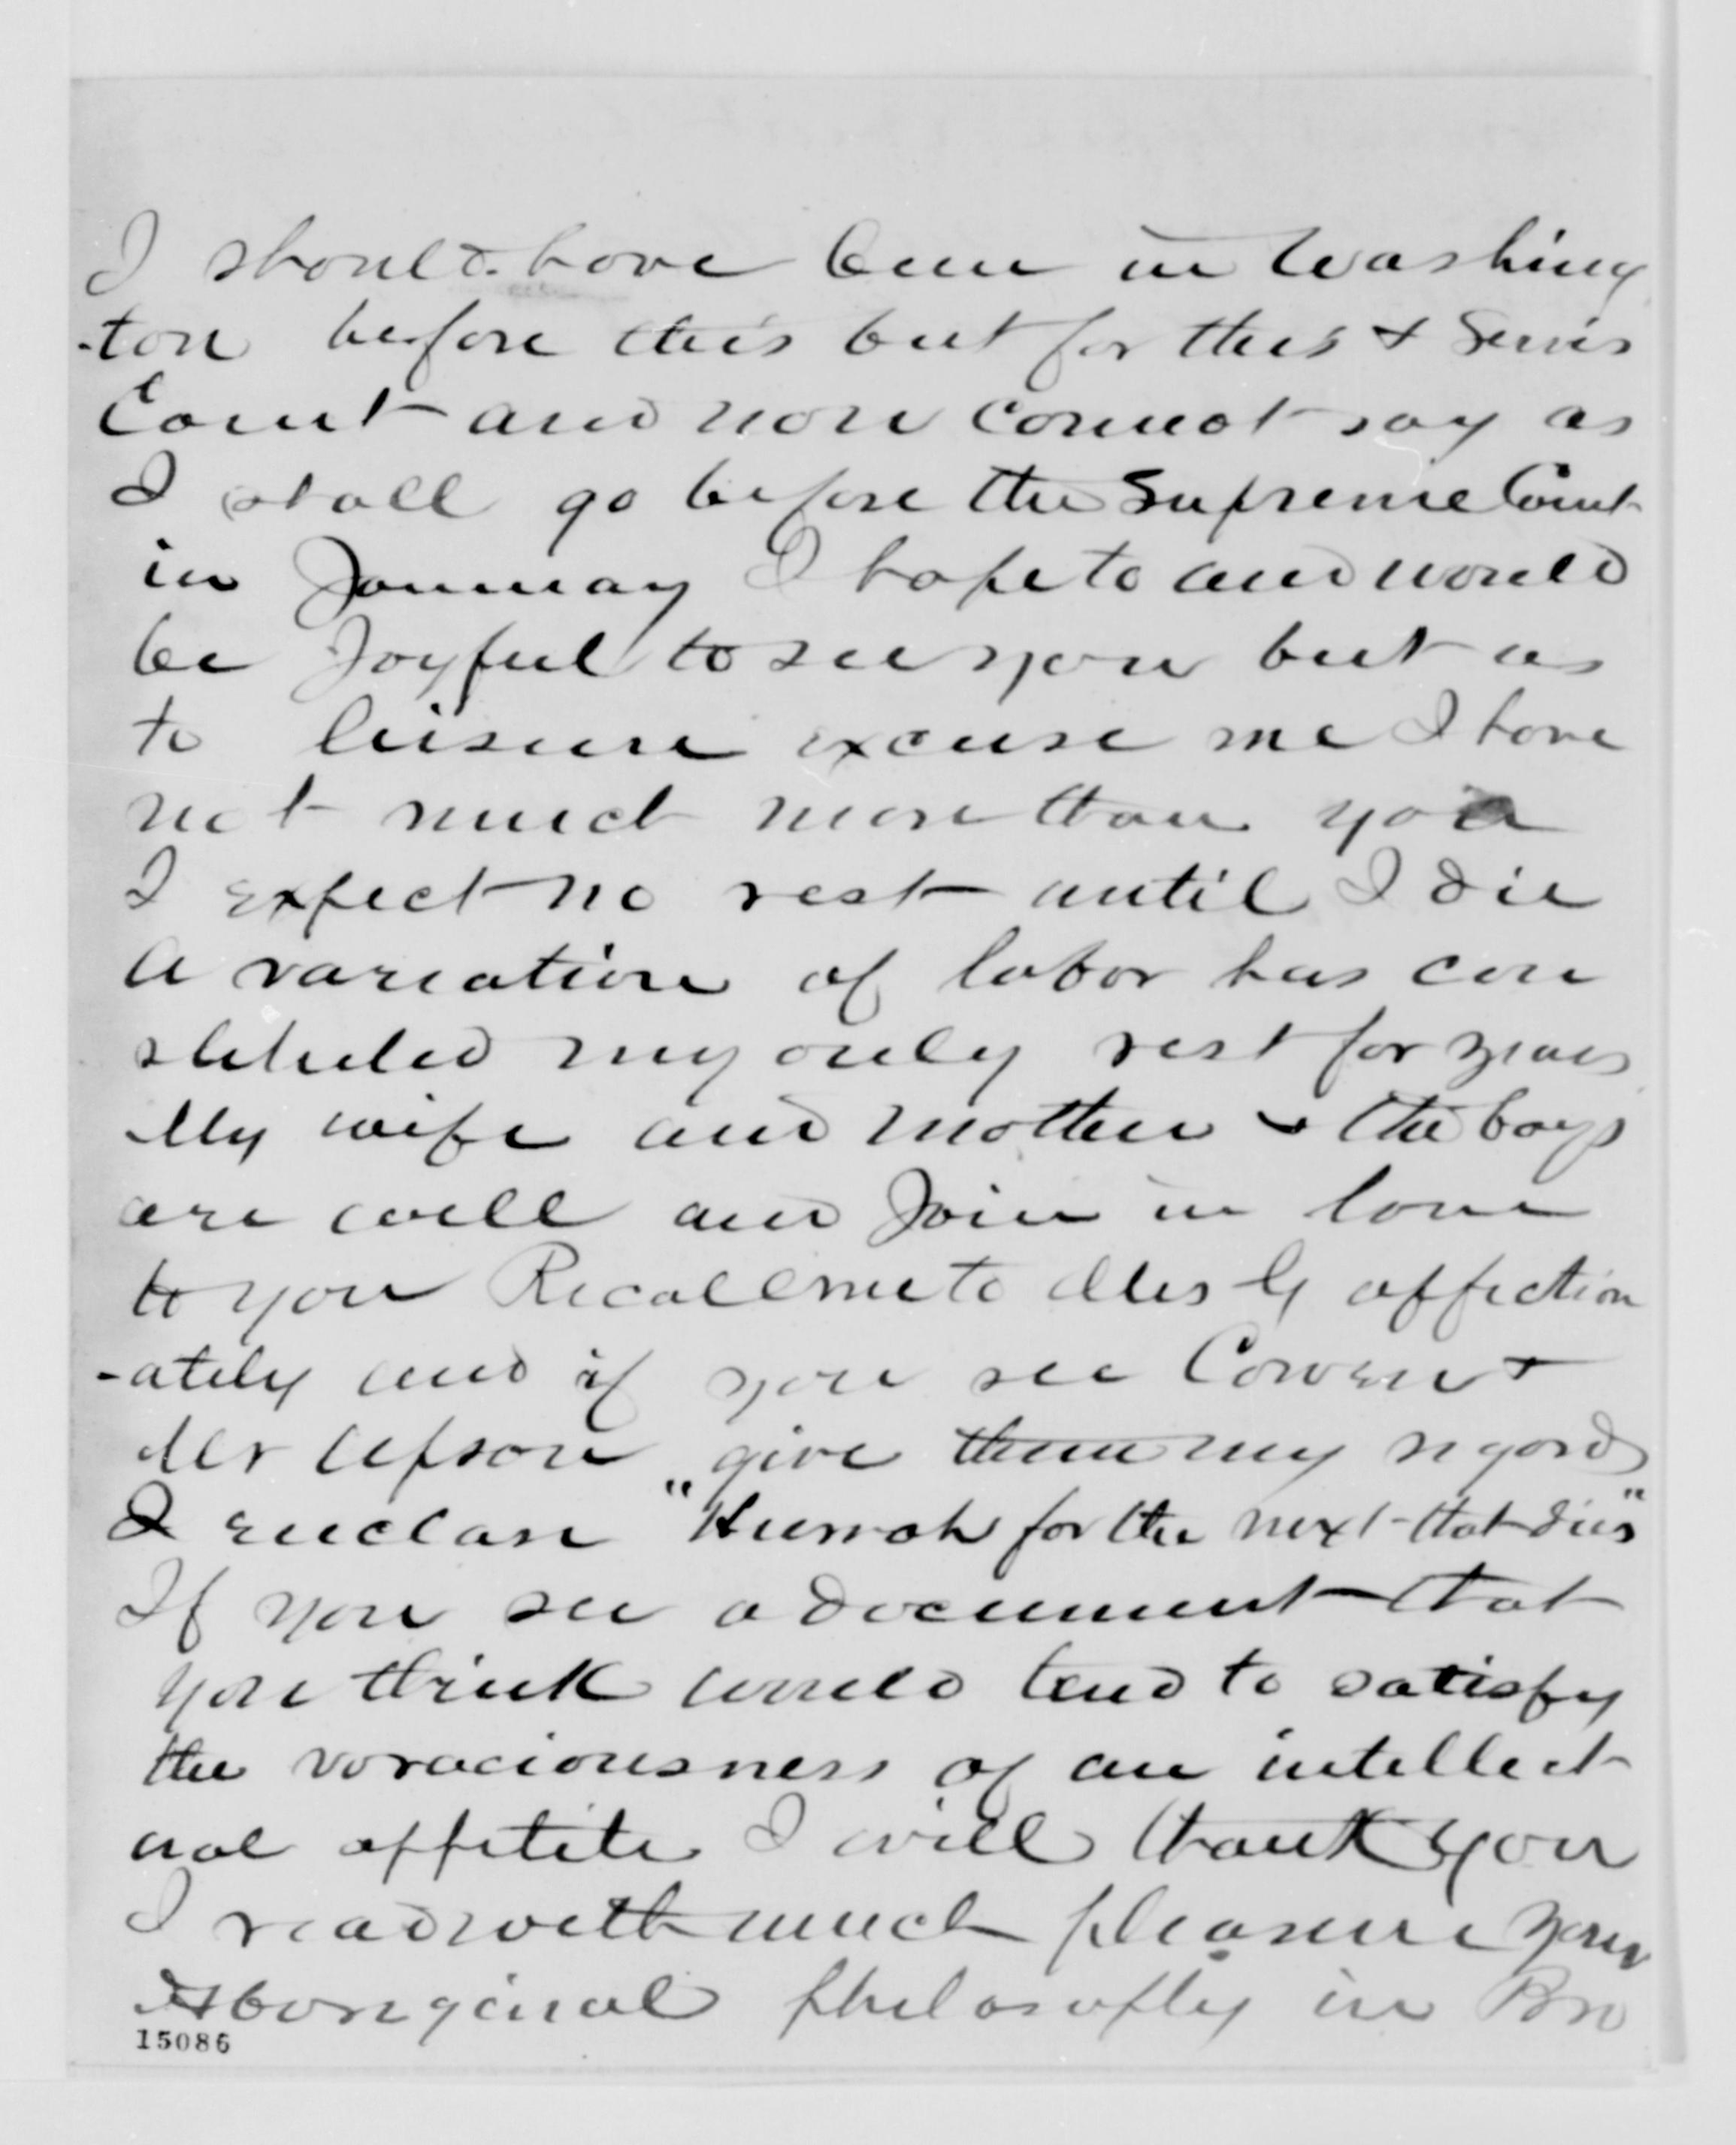 I should have been in Washing
-ton before this but for this &
Court and now cannot say as
I shall go before the Supreme Court
in January I hope to and would
be Joyful to see you but as
to leisure excuse me I have
not much more than you
I expect no rest until I die
A variation of labor has con
stituted my only rest for years
My wife and mother & the boys
are well and Join in love
to you Recall me to Mrs G affection
-ately and if you see Cowen &
Mr Upson give them my regards
I enclose "Hurrah for the next that dies"
If you see a document that
you think would tend to satisfy
the voraciousness of an intellect
ual appetite I will thank you
I read with much pleasure your
Aboriginal philosophy in Bro
15086